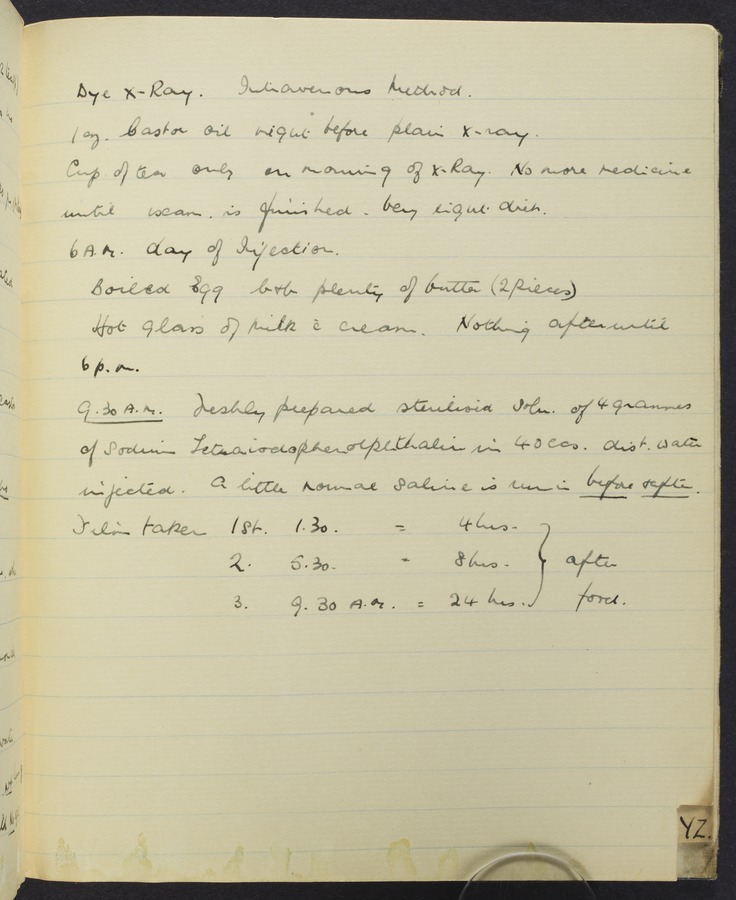 Dye X-Ray. Intravenous Method.
1 oz. Castor oil night before plain X-ray.
Cup of tea only on morning of X-Ray. No more medicine
until exam. is finished. Very light diet.
6 A.M. day of Injection.
Boiled Egg b+b plenty of butter (2 pieces)
Hot glass of milk c̄ cream. Nothing after until
6 p.m.
9.30 A.M. Freshly prepared sterilised soln. of 4 grammes
of Sodium Tetraiodophenolphthalin in 40 ccs. dist. water
injected. A little normal saline is run in before & after.
Films taken 1st. 1.30. = 4 hrs.
2. 5.30. = 8 hrs. } after
3. 9.30 A.M. = 24 hrs.
YZ.